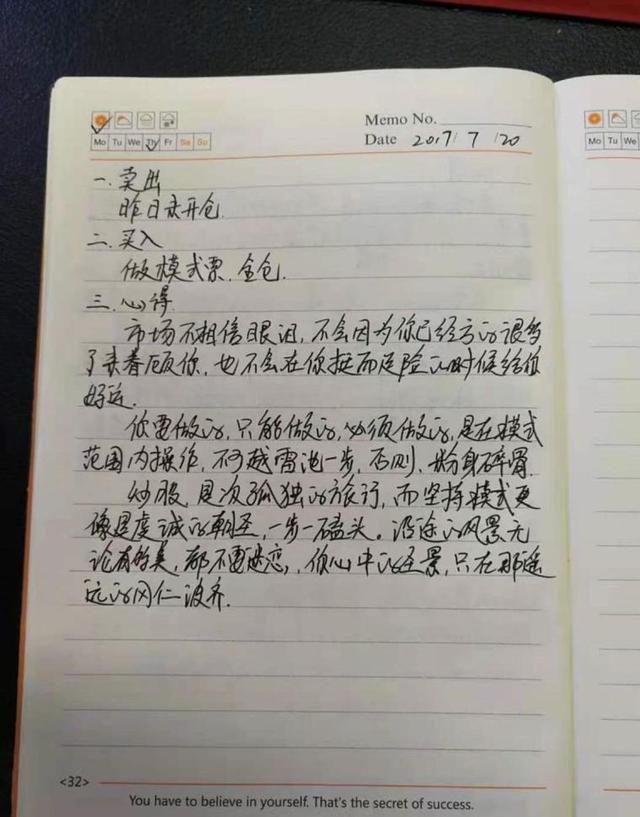 Memo No.
Mo Tu We Th Fr Sa Su
Date 2017/7/20
Mo Tu We
一.卖出
昨日未开仓.
二.买入
做模式票.全仓.
三.心得.
市场不相信眼泪,不会因为你已经亏的很多
了来眷顾你,也不会在你挺而走险的时候给你
好运.
你要做的,只能做的,必须做的,是在模式
范围内操作,不可越雷池一步,否则,粉身碎骨.
炒股,是次孤独的旅行,而坚持模式更
像是虔诚的朝圣,一步一磕头。沿途的风景无
论有多美,都不要迷恋,你心中的圣景,只在那遥
远的冈仁波齐.
<32>
You have to believe in yourself. That's the secret of success.